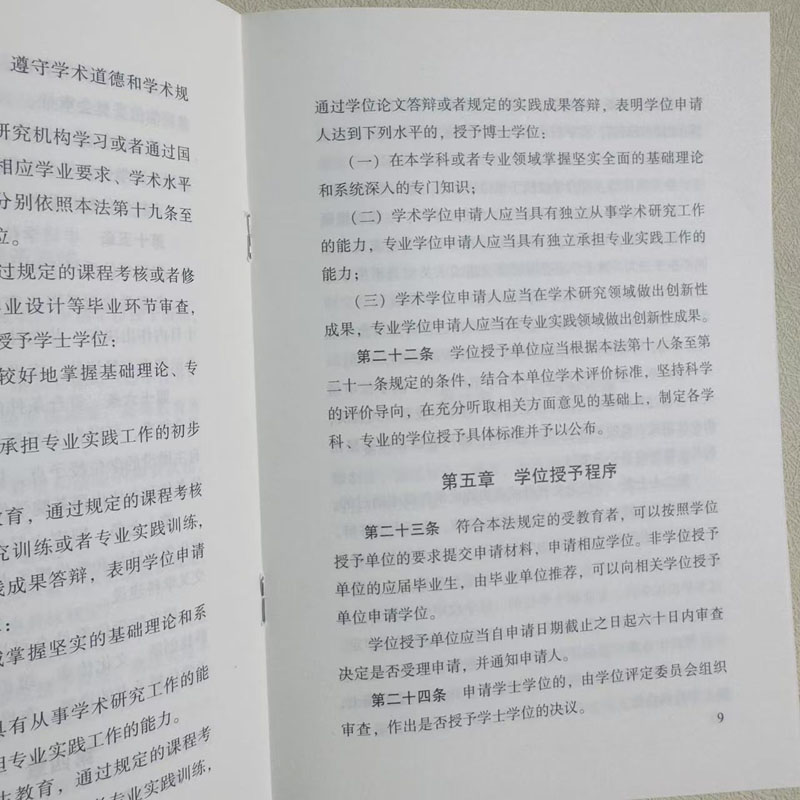 遵守学术道德和学术规
研究机构学习或者通过国
相应学业要求、学术水平
分别依照本法第十九条至
位。
过规定的课程考核或者修
毕业设计等毕业环节审查,
授予学士学位:
较好地掌握基础理论、专
承担专业实践工作的初步
教育,通过规定的课程考核
究训练或者专业实践训练,
践成果答辩,表明学位申请
:
或掌握坚实的基础理论和系
具有从事学术研究工作的能
担专业实践工作的能力。
士教育,通过规定的课程考
或者专业实践训练,
通过学位论文答辩或者规定的实践成果答辩,表明学位申请
人达到下列水平的,授予博士学位:
(一)在本学科或者专业领域掌握坚实全面的基础理论
和系统深入的专门知识;
(二)学术学位申请人应当具有独立从事学术研究工作
的能力,专业学位申请人应当具有独立承担专业实践工作的
能力;
(三)学术学位申请人应当在学术研究领域做出创新性
成果,专业学位申请人应当在专业实践领域做出创新性成果。
第二十二条 学位授予单位应当根据本法第十八条至第
二十一条规定的条件,结合本单位学术评价标准,坚持科学
的评价导向,在充分听取相关方面意见的基础上,制定各学
科、专业的学位授予具体标准并予以公布。
第五章 学位授予程序
第二十三条 符合本法规定的受教育者,可以按照学位
授予单位的要求提交申请材料,申请相应学位。非学位授予
单位的应届毕业生,由毕业单位推荐,可以向相关学位授予
单位申请学位。
学位授予单位应当自申请日期截止之日起六十日内审查
决定是否受理申请,并通知申请人。
第二十四条 申请学士学位的,由学位评定委员会组织
审查,作出是否授予学士学位的决议。
9